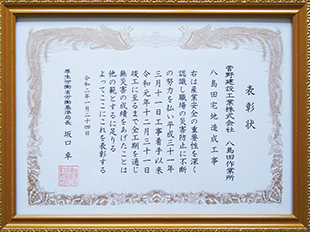 表彰状
菅野建設工業株式会社 八島田作業所
八島田宅地造成工事
右は産業安全の重要性を深く
認識し職場の災害防止に不断
の努力を払い平成三十一年
三月十一日工事着手以来
令和元年十二月三十一日
竣工に至るまで全工期を通じ
無災害の成績をあげたことは
他の範とするに足りる
よってここにこれを表彰する
令和二年一月二十四日
厚生労働省労働基準局長 坂口 卓